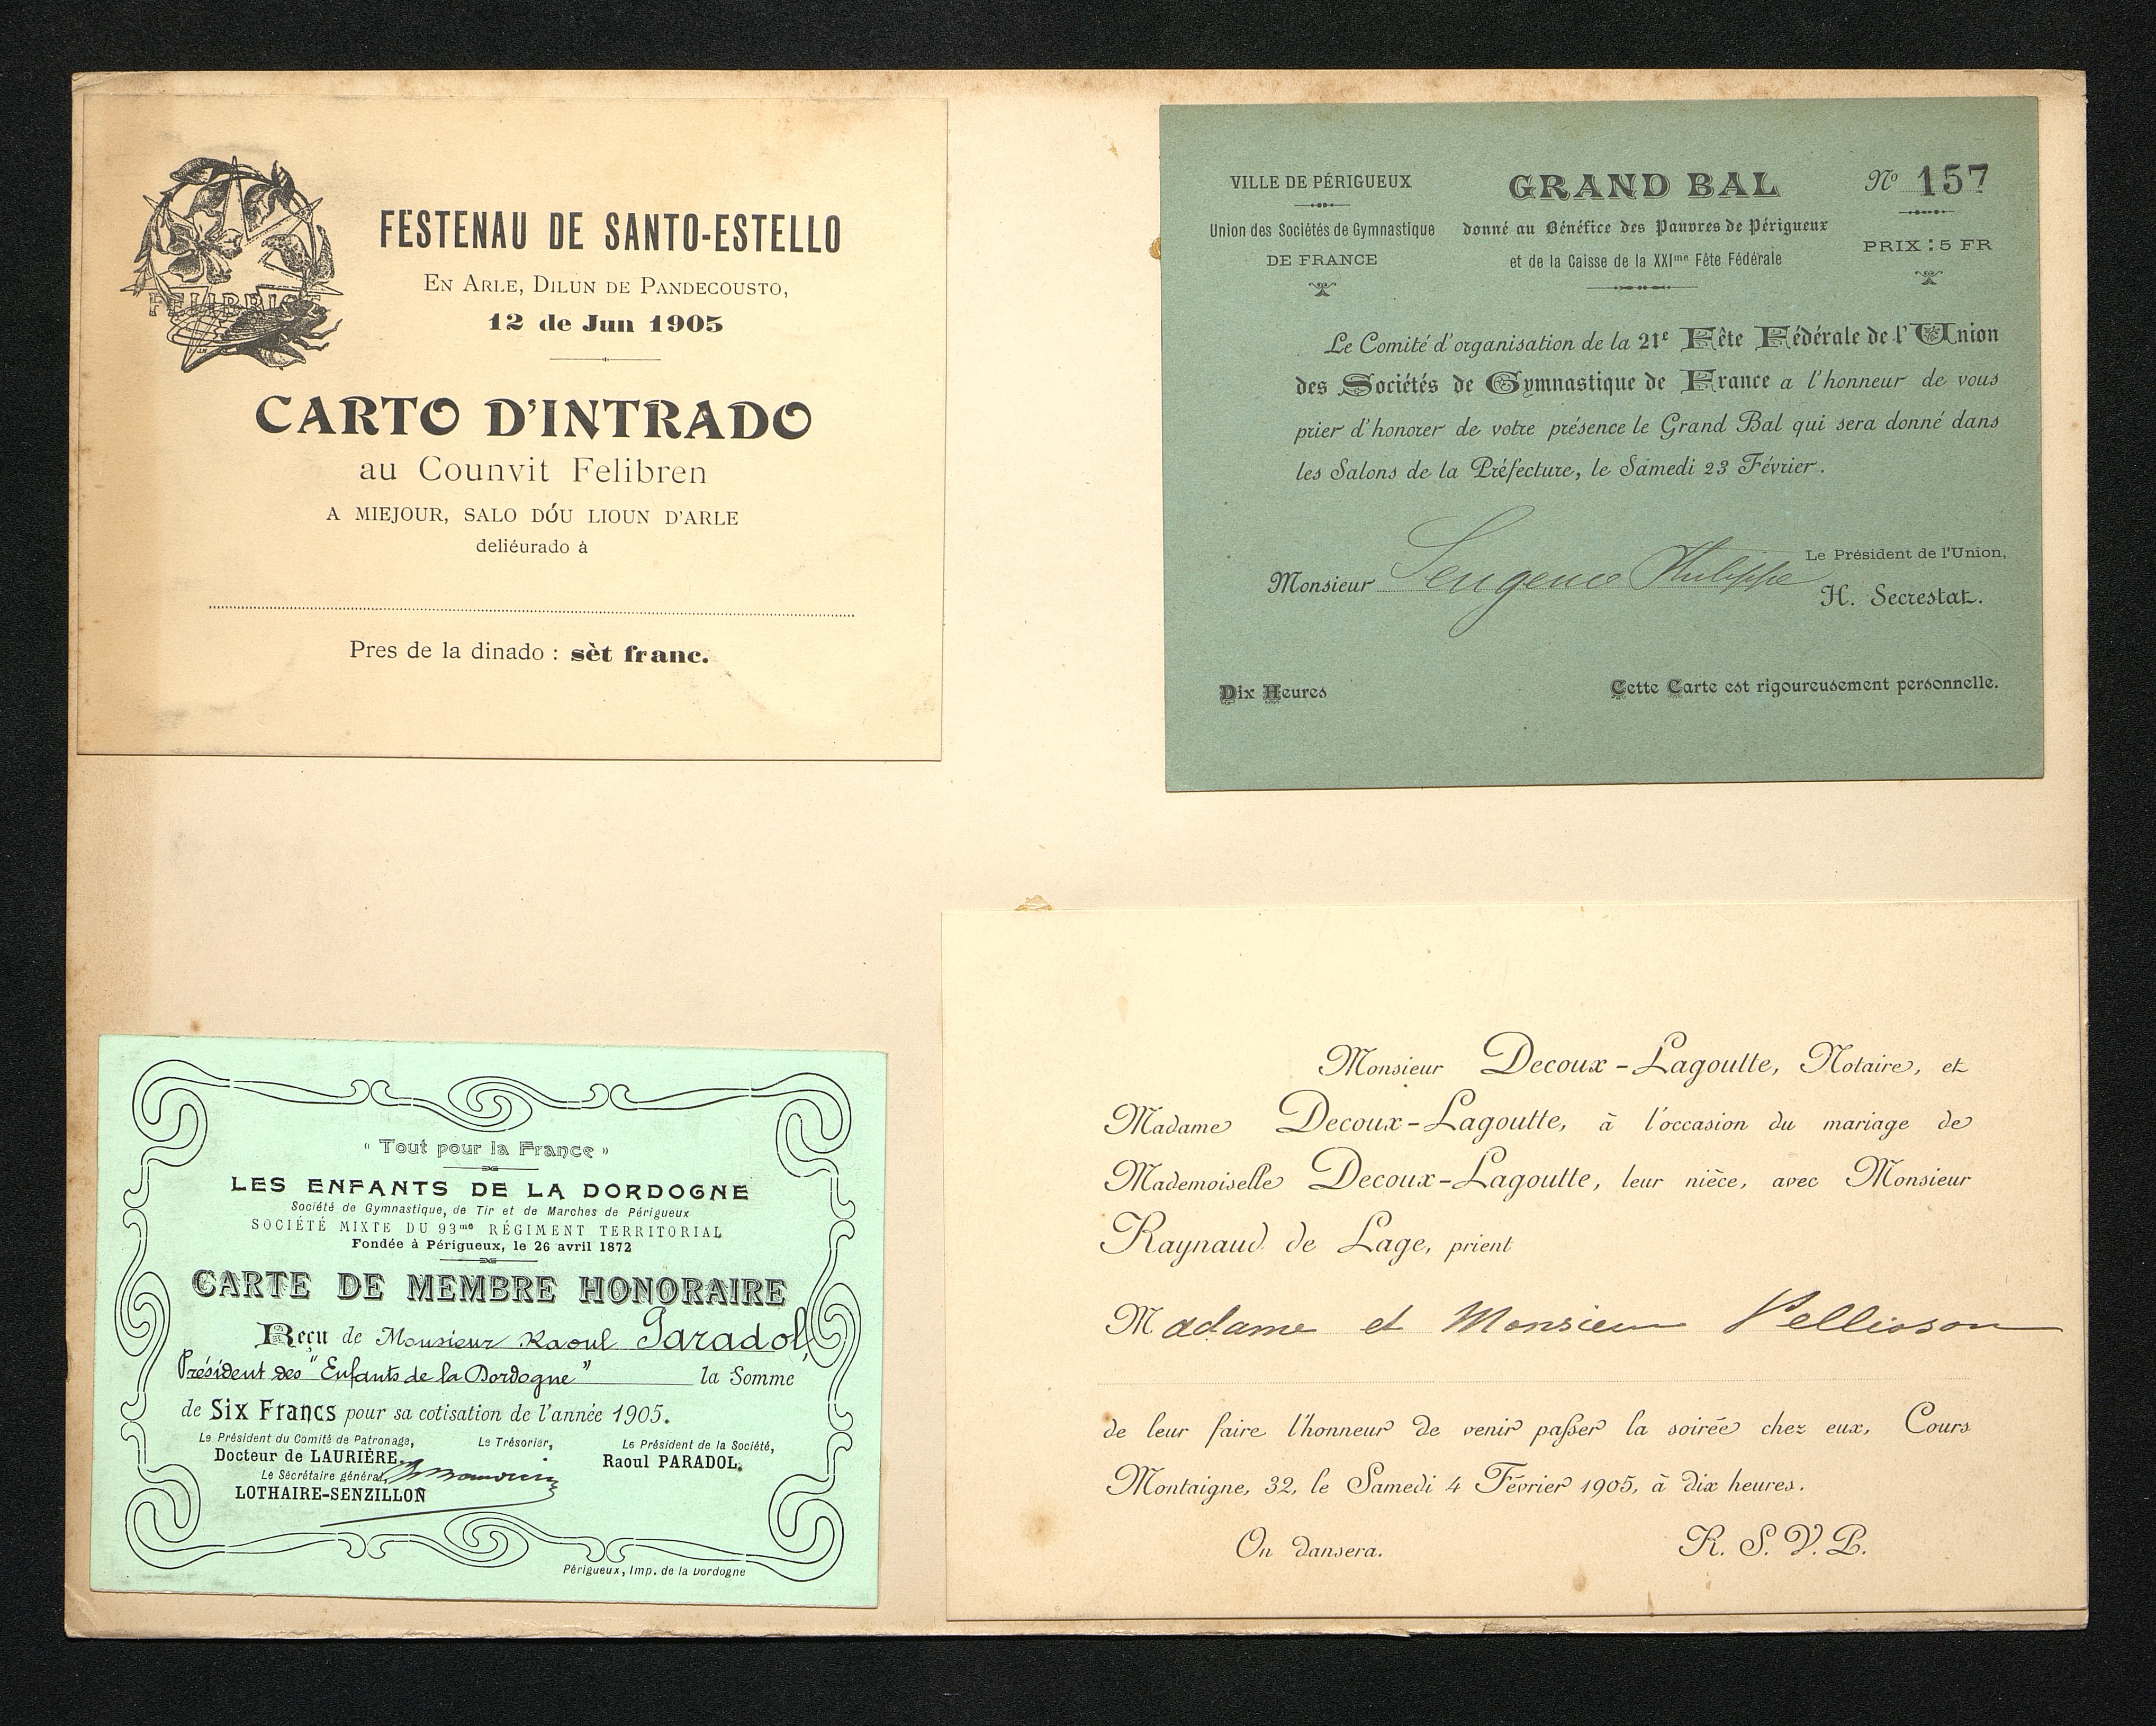 FELIBRIGE
FESTENAU DE SANTO-ESTELLO
EN ARLE, DILUN DE PANDECOUSTO,
12 de Jun 1905
CARTO D'INTRADO
au Counvit Felibren
A MIEJOUR, SALO DÓU LIOUN D'ARLE
deliéurado à
Pres de la dinado : sèt franc.
VILLE DE PÉRIGUEUX
Union des Sociétés de Gymnastique
DE FRANCE
GRAND BAL
donné au Bénéfice des Pauvres de Périgueux
et de la Caisse de la XXIme Fête Fédérale
No 157
PRIX : 5 FR
Le Comité d'organisation de la 21e Fête Fédérale de l'Union
des Sociétés de Gymnastique de France a l'honneur de vous
prier d'honorer de votre présence le Grand Bal qui sera donné dans
les Salons de la Préfecture, le Samedi 23 Février.
Le Président de l'Union,
Monsieur Philippe
H. Secrestat.
Dix Heures
Cette Carte est rigoureusement personnelle.
« Tout pour la France »
LES ENFANTS DE LA DORDOGNE
Société de Gymnastique, de Tir et de Marches de Périgueux
SOCIÉTÉ MIXTE DU 93me RÉGIMENT TERRITORIAL
Fondée à Périgueux, le 26 avril 1872
CARTE DE MEMBRE HONORAIRE
Reçu de Monsieur Raoul Paradol,
Président des "Enfants de la Dordogne" la Somme
de Six Francs pour sa cotisation de l'année 1905.
Le Président du Comité de Patronage,
Docteur de LAURIÈRE.
Le Secrétaire général,
LOTHAIRE-SENZILLON
Le Trésorier,
Le Président de la Société,
Raoul PARADOL.
Périgueux, Imp. de la Dordogne
Monsieur Decoux-Lagoutte, Notaire, et
Madame Decoux-Lagoutte, à l'occasion du mariage de
Mademoiselle Decoux-Lagoutte, leur nièce, avec Monsieur
Raynaud de Lage, prient
Madame et Monsieur Pellisson
de leur faire l'honneur de venir passer la soirée chez eux, Cours
Montaigne, 32, le Samedi 4 Février 1905, à dix heures.
On dansera.
R. S. V. P.